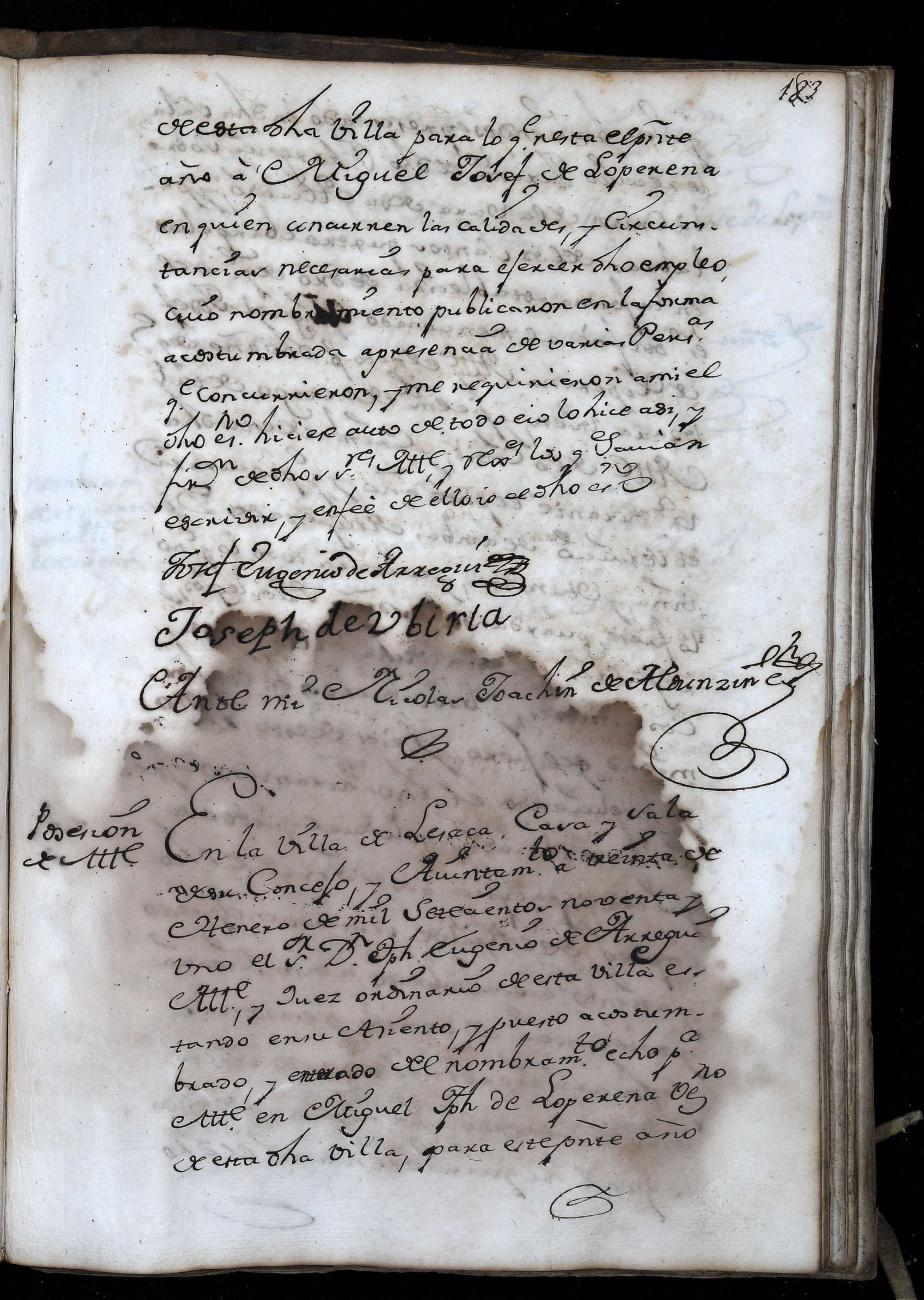 183
de esta dha Villa para lo q.e resta el pñte
año à Miguel Josef de Loperena
en quien concurren las calidades, y Circuns-
tancias necesarias para ejercer dho empleo,
cuio nombramiento publicaron en la forma
acostumbrada a presencia de varias Pers.as
q.e concurrieron, y me requirieron a mi el
dho es.no hiciese auto de todo eio lo hice asi, y
firm.n dehos s.res Alld.e y los q.e savian
escrivir, y en feè de ello io el dho es.no
Josef Eugenio de Arregui
Joseph de Ubiria
Ante mi Nicolas Joachin de Alzunzin es.no
Posesion
de Alld.e
En la Villa de Lesaca, Casa y Sala
de su Concejo, y Aiuntam.to a treinta de
Henero de mil Setecientos noventa y
uno el s.r D.n Jph. Eugenio de Arregui
Alld.e, y Juez ordinario de esta villa es-
tando en su Asiento, y puesto acostum-
brado, y enterado del nombram.to echo p.a
Alld.e en Miguel Jph de Loperena Vez.no
de esta dha villa, para este pñte año